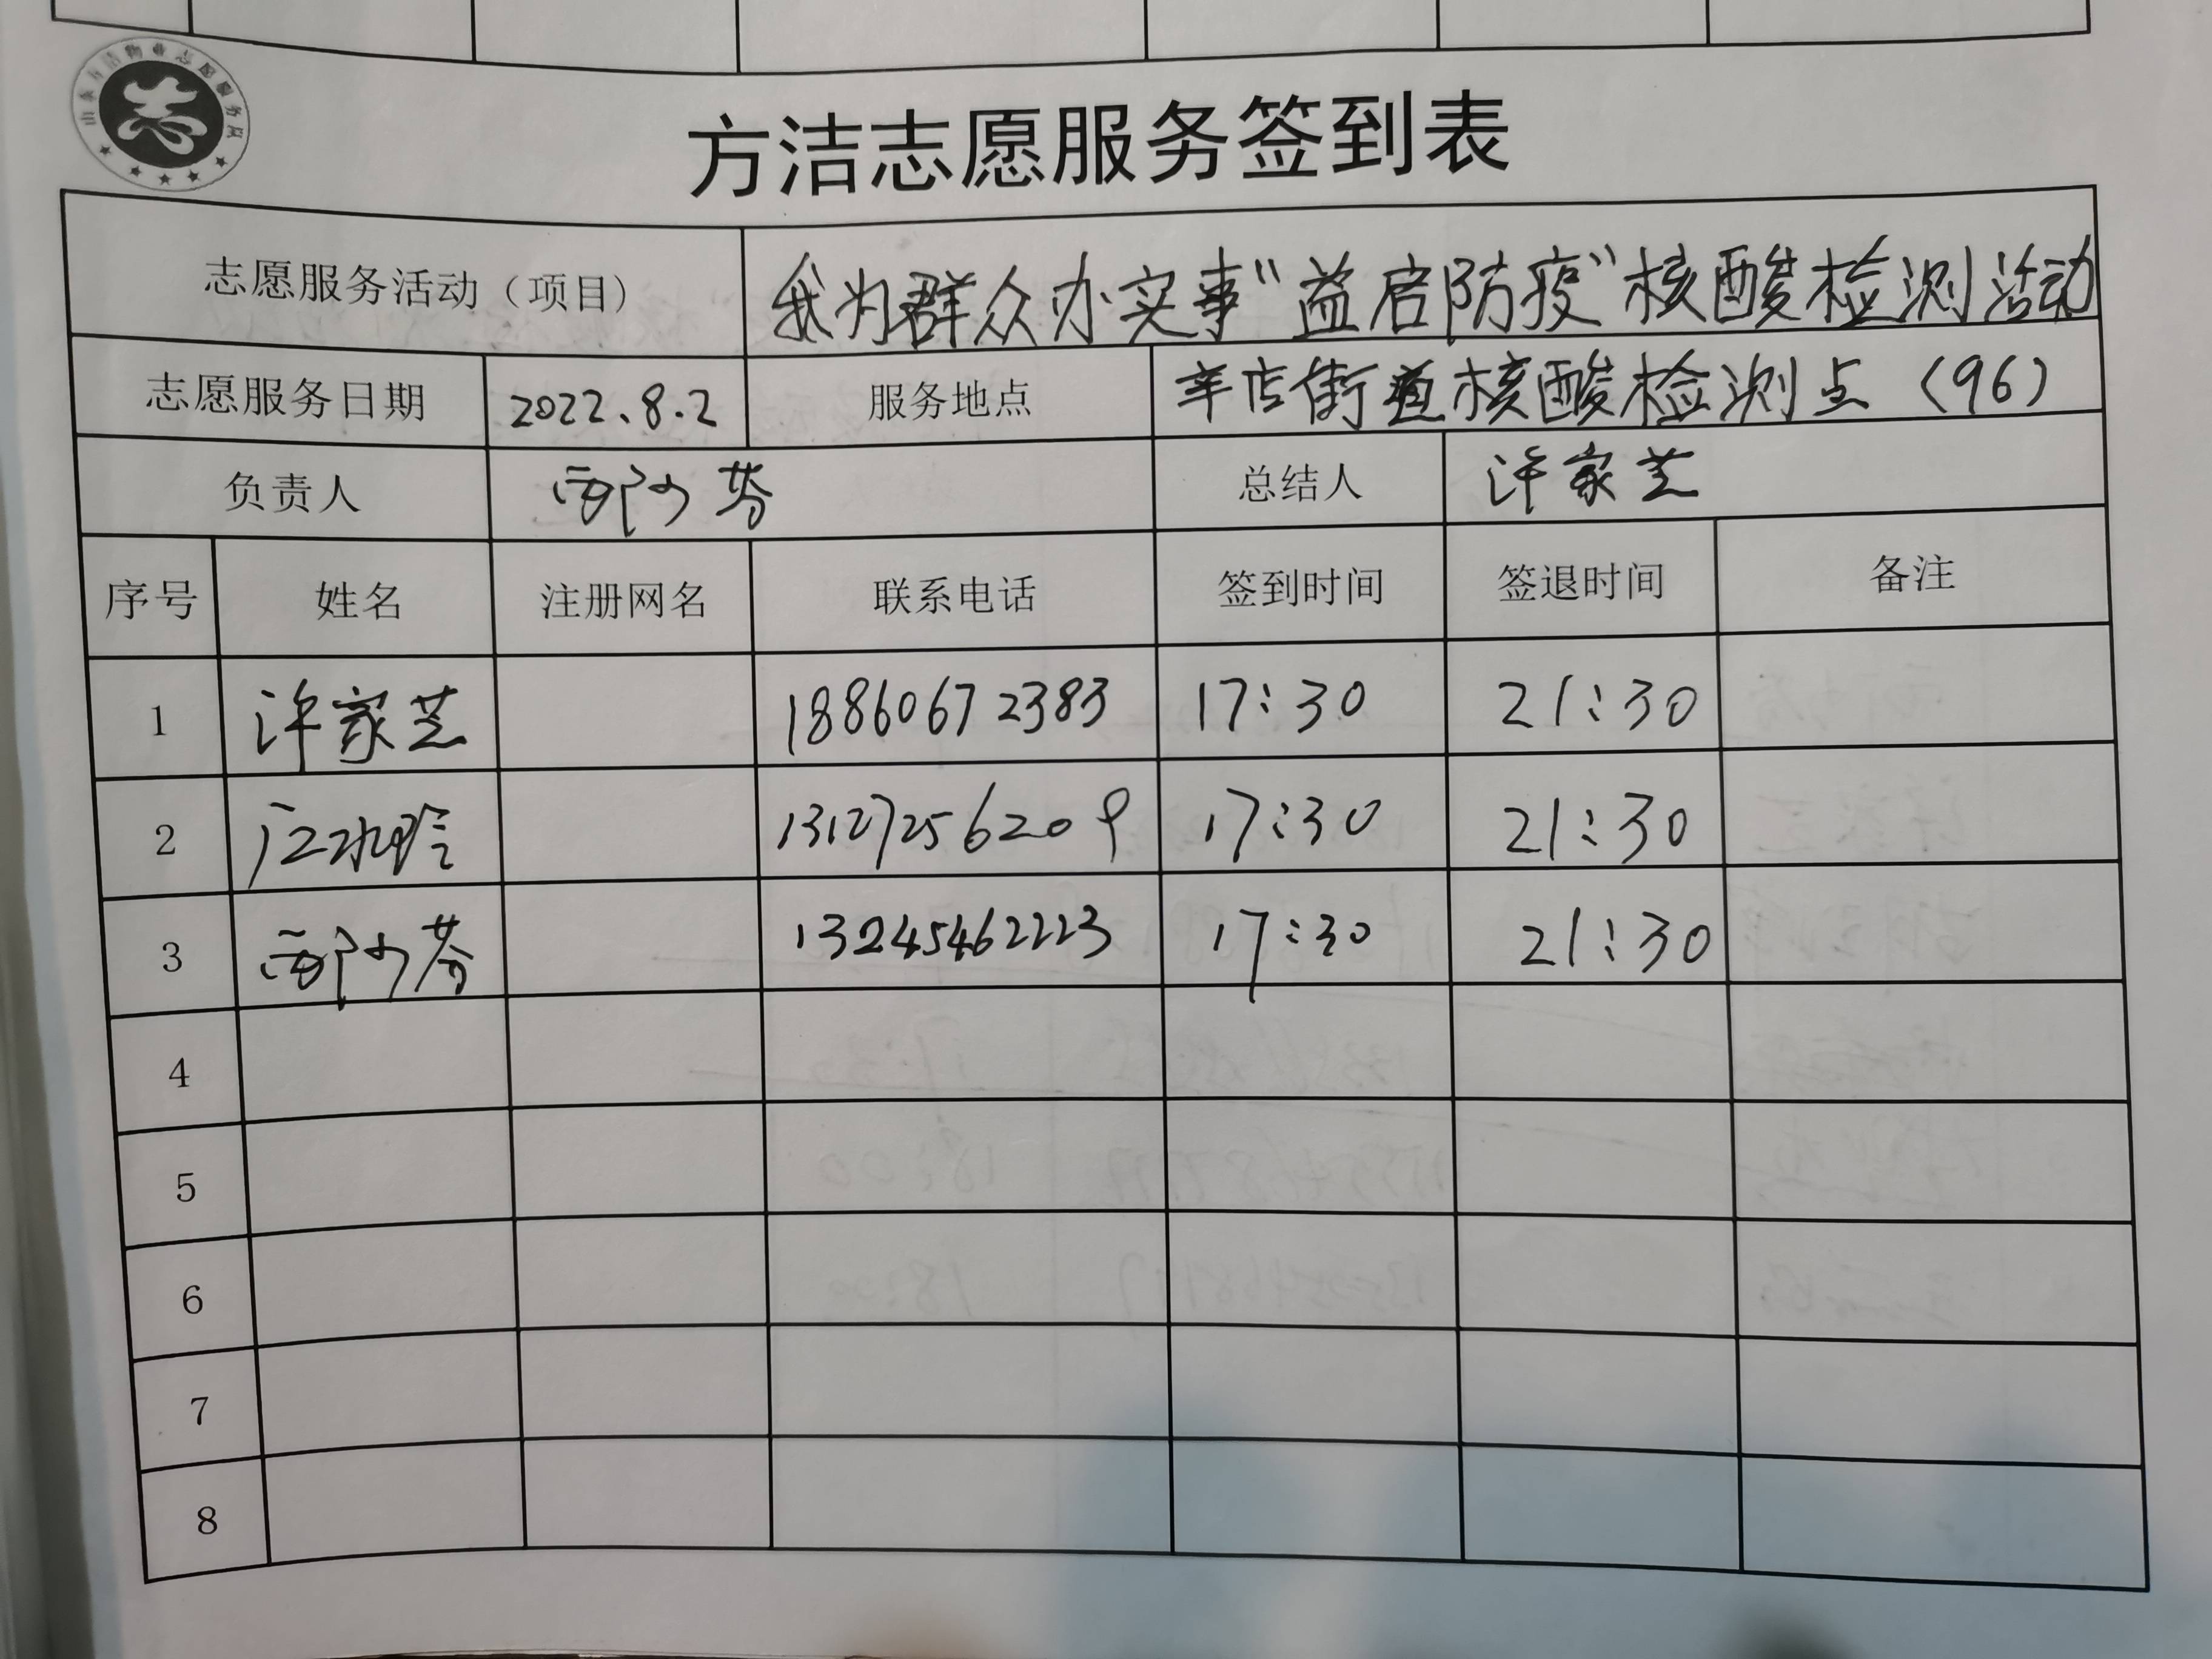 山东方洁物业志愿服务队
方洁志愿服务签到表
志愿服务活动（项目） 我为群众办实事“益启防疫”核酸检测活动
志愿服务日期 2022.8.2 服务地点 辛店街道核酸检测点（96）
负责人 总结人 许家芝
序号 姓名 注册网名 联系电话 签到时间 签退时间 备注
1 许家芝 18860672383 17:30 21:30
2 13127256209 17:30 21:30
3 13245462223 17:30 21:30
4
5
6
7
8